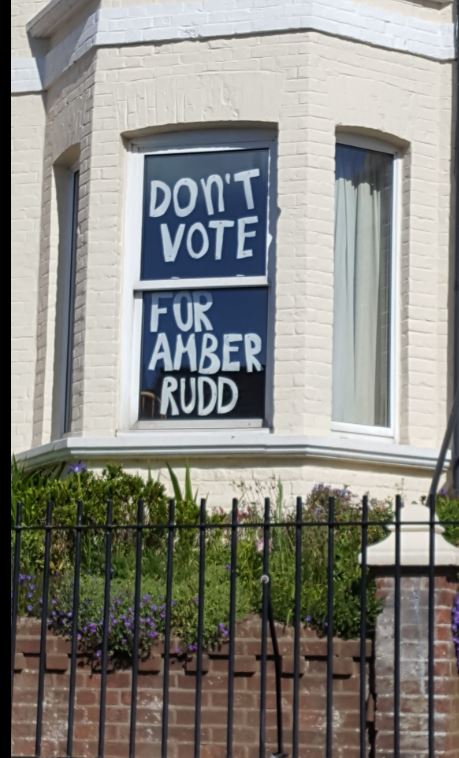 DON'T
VOTE
FOR
AMBER
RUDD